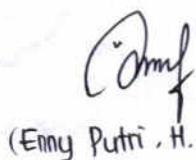 (Enny Putri . H.